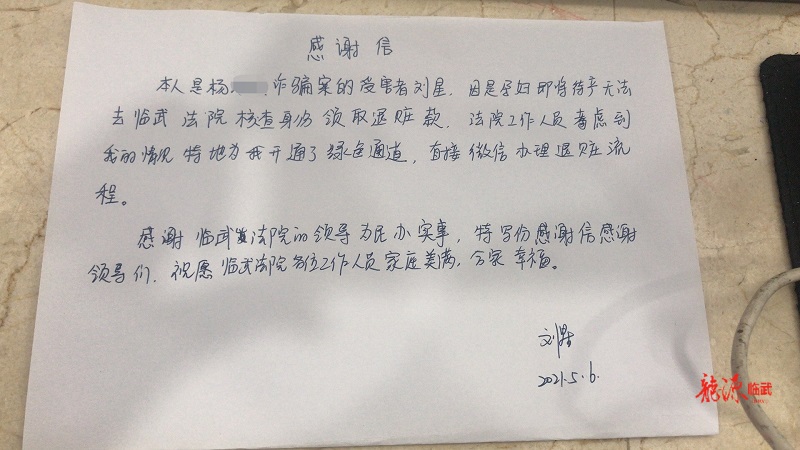 感谢信
本人是杨 诈骗案的受害者刘星，因是孕妇即将待产无法
去临武法院核查身份领取退赃款，法院工作人员考虑到
我的情况特地为我开通了绿色通道，直接微信办理退赃流
程。
感谢临武法院的领导为民办实事，特写份感谢信感谢
领导们，祝愿临武法院各位工作人员家庭美满，合家幸福。
刘星
2021.5.6.
龙源临武